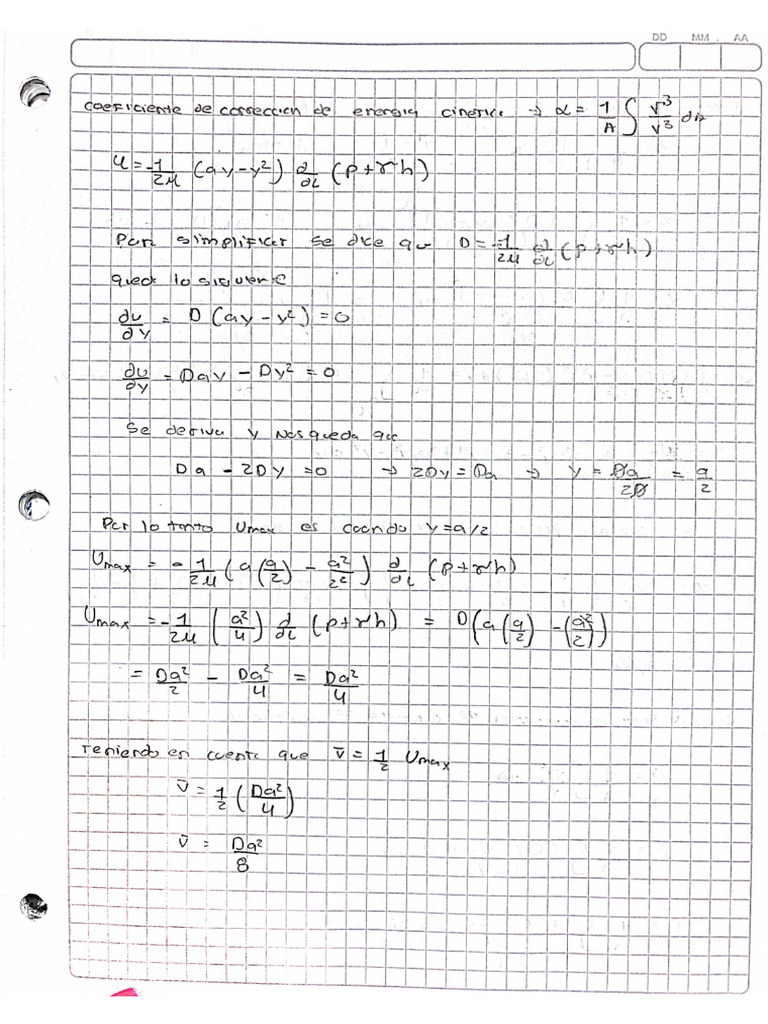 DD MM. AA
coeficiente de correccion de energia cinetica → α = 1/A ∫ V³/V̄³ dA
u = -1/2μ (ay-y²) d/dL (p+γh)
Para simplificar se dice que D = -1/2μ d/dL (p+γh)
queda lo siguiente
du/dy = D(ay-y²)=0
du/dy = Day - Dy² = 0
Se deriva y nos queda que
Da - 2Dy = 0 → 2Dy = Da → y = Da/2D = a/2
Por lo tanto Umax es cuando y=a/2
Umax = -1/2μ (a(a/2) - a²/2²) d/dL (p+γh)
Umax = -1/2μ (a²/4) d/dL (p+γh) = D(a(a/2) -(a²/2))
= Da²/2 - Da²/4 = Da²/4
teniendo en cuenta que v̄ = 1/2 Umax
v̄ = 1/2 (Da²/4)
v̄ = Da²/8